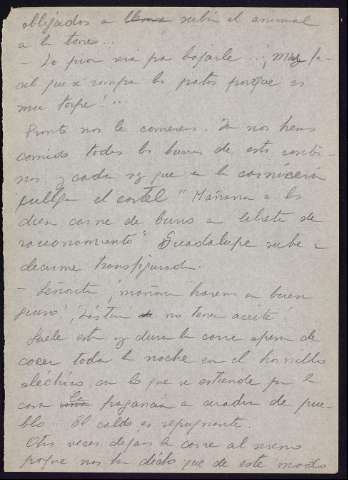 obligados a subir el animal
a la torre...
- Lo peor sera pa bajarle... ¡Muy fa-
cil que se rompa las patas porque es
muy torpe!...
Pronto nos le comeremos. Ya nos hemos
comido todos los burros de estos contor-
nos y cada vez que en la carnicería
el cartel "Mañana a las
diez carne de burro en tikete de
racionamiento" Guadalupe sube a
decirme transfigurada.
- Señorita, ¡mañana haremos un buen
¡Lástima no tener aceite!
Suele estar muy dura la carne apesar de
cocer toda la noche en el hornillo
eléctrico con lo que se extiende por la
casa fragancia a de pue-
blo. El caldo es repugnante.
Otras veces dejan la carne al sereno
porque nos han dicho que de este modo